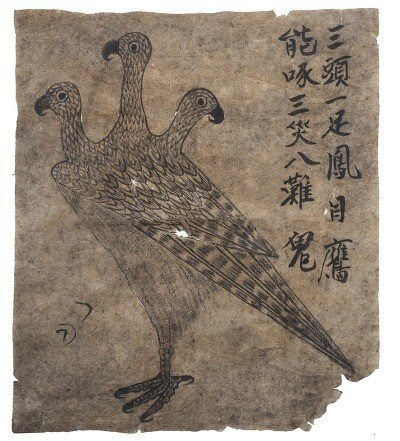 三頭一足鳳目鷹
能啄三災八灘鬼